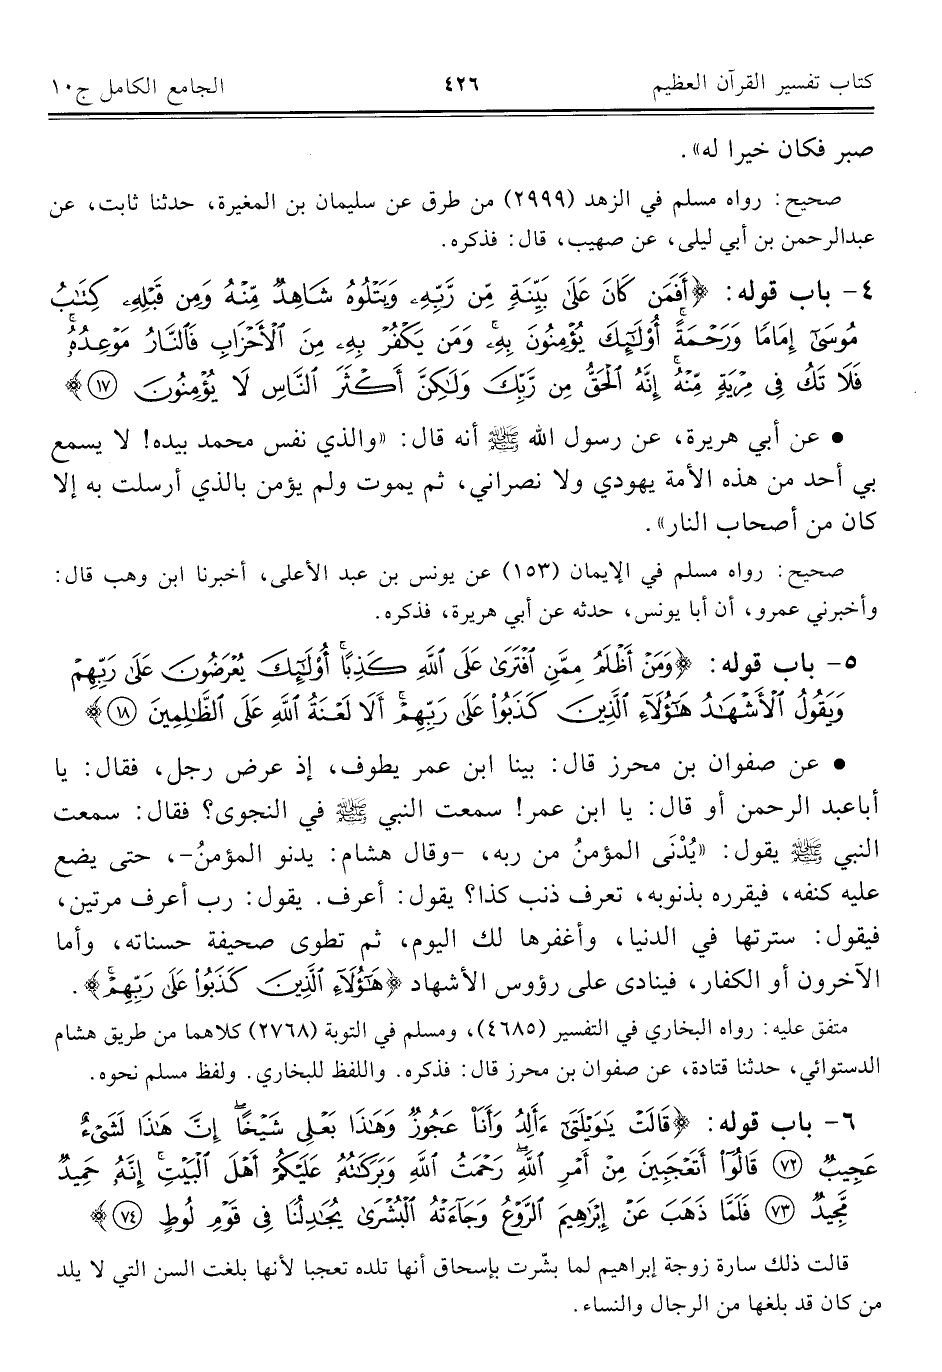 كتاب تفسير القرآن العظيم ٤٢٦ الجامع الكامل ج١٠
صبر فكان خيرا له».
صحيح: رواه مسلم في الزهد (٢٩٩٩) من طرق عن سليمان بن المغيرة، حدثنا ثابت، عن
عبدالرحمن بن أبي ليلى، عن صهيب، قال: فذكره.
٤- باب قوله: ﴿أَفَمَن كَانَ عَلَىٰ بَيِّنَةٍ مِّن رَّبِّهِۦ وَيَتْلُوهُ شَاهِدٌ مِّنْهُ وَمِن قَبْلِهِۦ كِتَٰبُ
مُوسَىٰٓ إِمَامًا وَرَحْمَةً ۚ أُو۟لَٰٓئِكَ يُؤْمِنُونَ بِهِۦ ۚ وَمَن يَكْفُرْ بِهِۦ مِنَ ٱلْأَحْزَابِ فَٱلنَّارُ مَوْعِدُهُۥ ۚ
فَلَا تَكُ فِى مِرْيَةٍ مِّنْهُ ۚ إِنَّهُ ٱلْحَقُّ مِن رَّبِّكَ وَلَٰكِنَّ أَكْثَرَ ٱلنَّاسِ لَا يُؤْمِنُونَ ١٧﴾
• عن أبي هريرة، عن رسول الله ﷺ أنه قال: «والذي نفس محمد بيده! لا يسمع
بي أحد من هذه الأمة يهودي ولا نصراني، ثم يموت ولم يؤمن بالذي أرسلت به إلا
كان من أصحاب النار».
صحيح: رواه مسلم في الإيمان (١٥٣) عن يونس بن عبد الأعلى، أخبرنا ابن وهب قال:
وأخبرني عمرو، أن أبا يونس، حدثه عن أبي هريرة، فذكره.
٥- باب قوله: ﴿وَمَنْ أَظْلَمُ مِمَّنِ ٱفْتَرَىٰ عَلَى ٱللَّهِ كَذِبًا ۚ أُو۟لَٰٓئِكَ يُعْرَضُونَ عَلَىٰ رَبِّهِمْ
وَيَقُولُ ٱلْأَشْهَٰدُ هَٰٓؤُلَآءِ ٱلَّذِينَ كَذَبُوا۟ عَلَىٰ رَبِّهِمْ ۚ أَلَا لَعْنَةُ ٱللَّهِ عَلَى ٱلظَّٰلِمِينَ ١٨﴾
• عن صفوان بن محرز قال: بينا ابن عمر يطوف، إذ عرض رجل، فقال: يا
أباعبد الرحمن أو قال: يا ابن عمر! سمعت النبي ﷺ في النجوى؟ فقال: سمعت
النبي ﷺ يقول: «يُدْنَى المؤمنُ من ربه، -وقال هشام: يدنو المؤمنُ-، حتى يضع
عليه كنفه، فيقرره بذنوبه، تعرف ذنب كذا؟ يقول: أعرف. يقول: رب أعرف مرتين،
فيقول: سترتها في الدنيا، وأغفرها لك اليوم، ثم تطوى صحيفة حسناته، وأما
الآخرون أو الكفار، فينادى على رؤوس الأشهاد ﴿هَٰٓؤُلَآءِ ٱلَّذِينَ كَذَبُوا۟ عَلَىٰ رَبِّهِمْ ۚ﴾.
متفق عليه: رواه البخاري في التفسير (٤٦٨٥)، ومسلم في التوبة (٢٧٦٨) كلاهما من طريق هشام
الدستوائي، حدثنا قتادة، عن صفوان بن محرز قال: فذكره. واللفظ للبخاري. ولفظ مسلم نحوه.
٦- باب قوله: ﴿قَالَتْ يَٰوَيْلَتَىٰٓ ءَأَلِدُ وَأَنَا۠ عَجُوزٌ وَهَٰذَا بَعْلِى شَيْخًا ۖ إِنَّ هَٰذَا لَشَىْءٌ
عَجِيبٌ ٧٢ قَالُوٓا۟ أَتَعْجَبِينَ مِنْ أَمْرِ ٱللَّهِ ۖ رَحْمَتُ ٱللَّهِ وَبَرَكَٰتُهُۥ عَلَيْكُمْ أَهْلَ ٱلْبَيْتِ ۚ إِنَّهُۥ حَمِيدٌ
مَّجِيدٌ ٧٣ فَلَمَّا ذَهَبَ عَنْ إِبْرَٰهِيمَ ٱلرَّوْعُ وَجَآءَتْهُ ٱلْبُشْرَىٰ يُجَٰدِلُنَا فِى قَوْمِ لُوطٍ ٧٤﴾
قالت ذلك سارة زوجة إبراهيم لما بشّرت بإسحاق أنها تلده تعجبا لأنها بلغت السن التي لا يلد
من كان قد بلغها من الرجال والنساء.